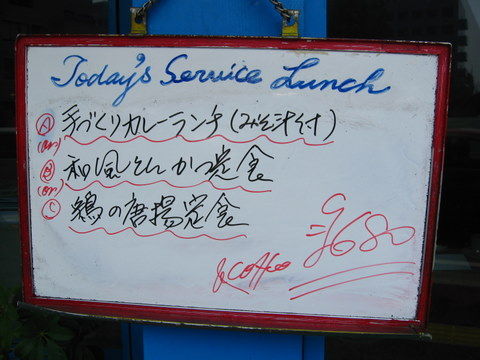 Today's Service Lunch
Ⓐ 手づくりカレーランチ(みそ汁付)
(or)
Ⓑ 和風とんかつ定食
(or)
Ⓒ 鶏の唐揚定食
&coffee
¥680